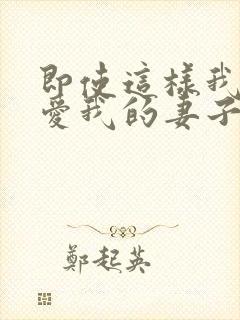 即使這樣我
愛我的妻子
鄭起英